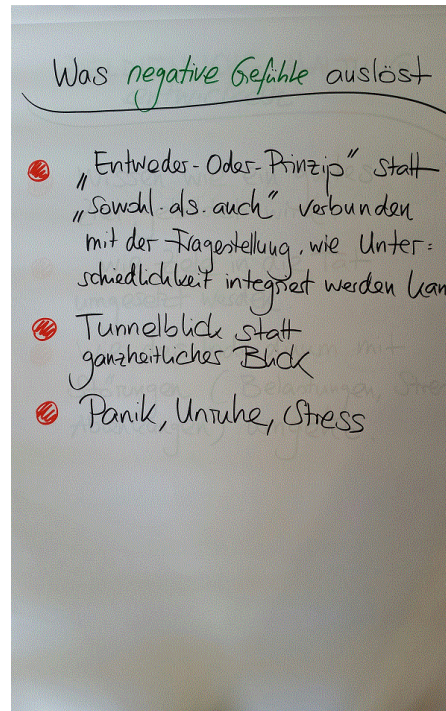 Was negative Gefühle auslöst
„Entweder-Oder-Prinzip" statt
„Sowohl-als-auch" verbunden
mit der Fragestellung, wie Unter=
schiedlichkeit integriert werden kan
Tunnelblick statt
ganzheitliches Blick
Panik, Unruhe, Stress